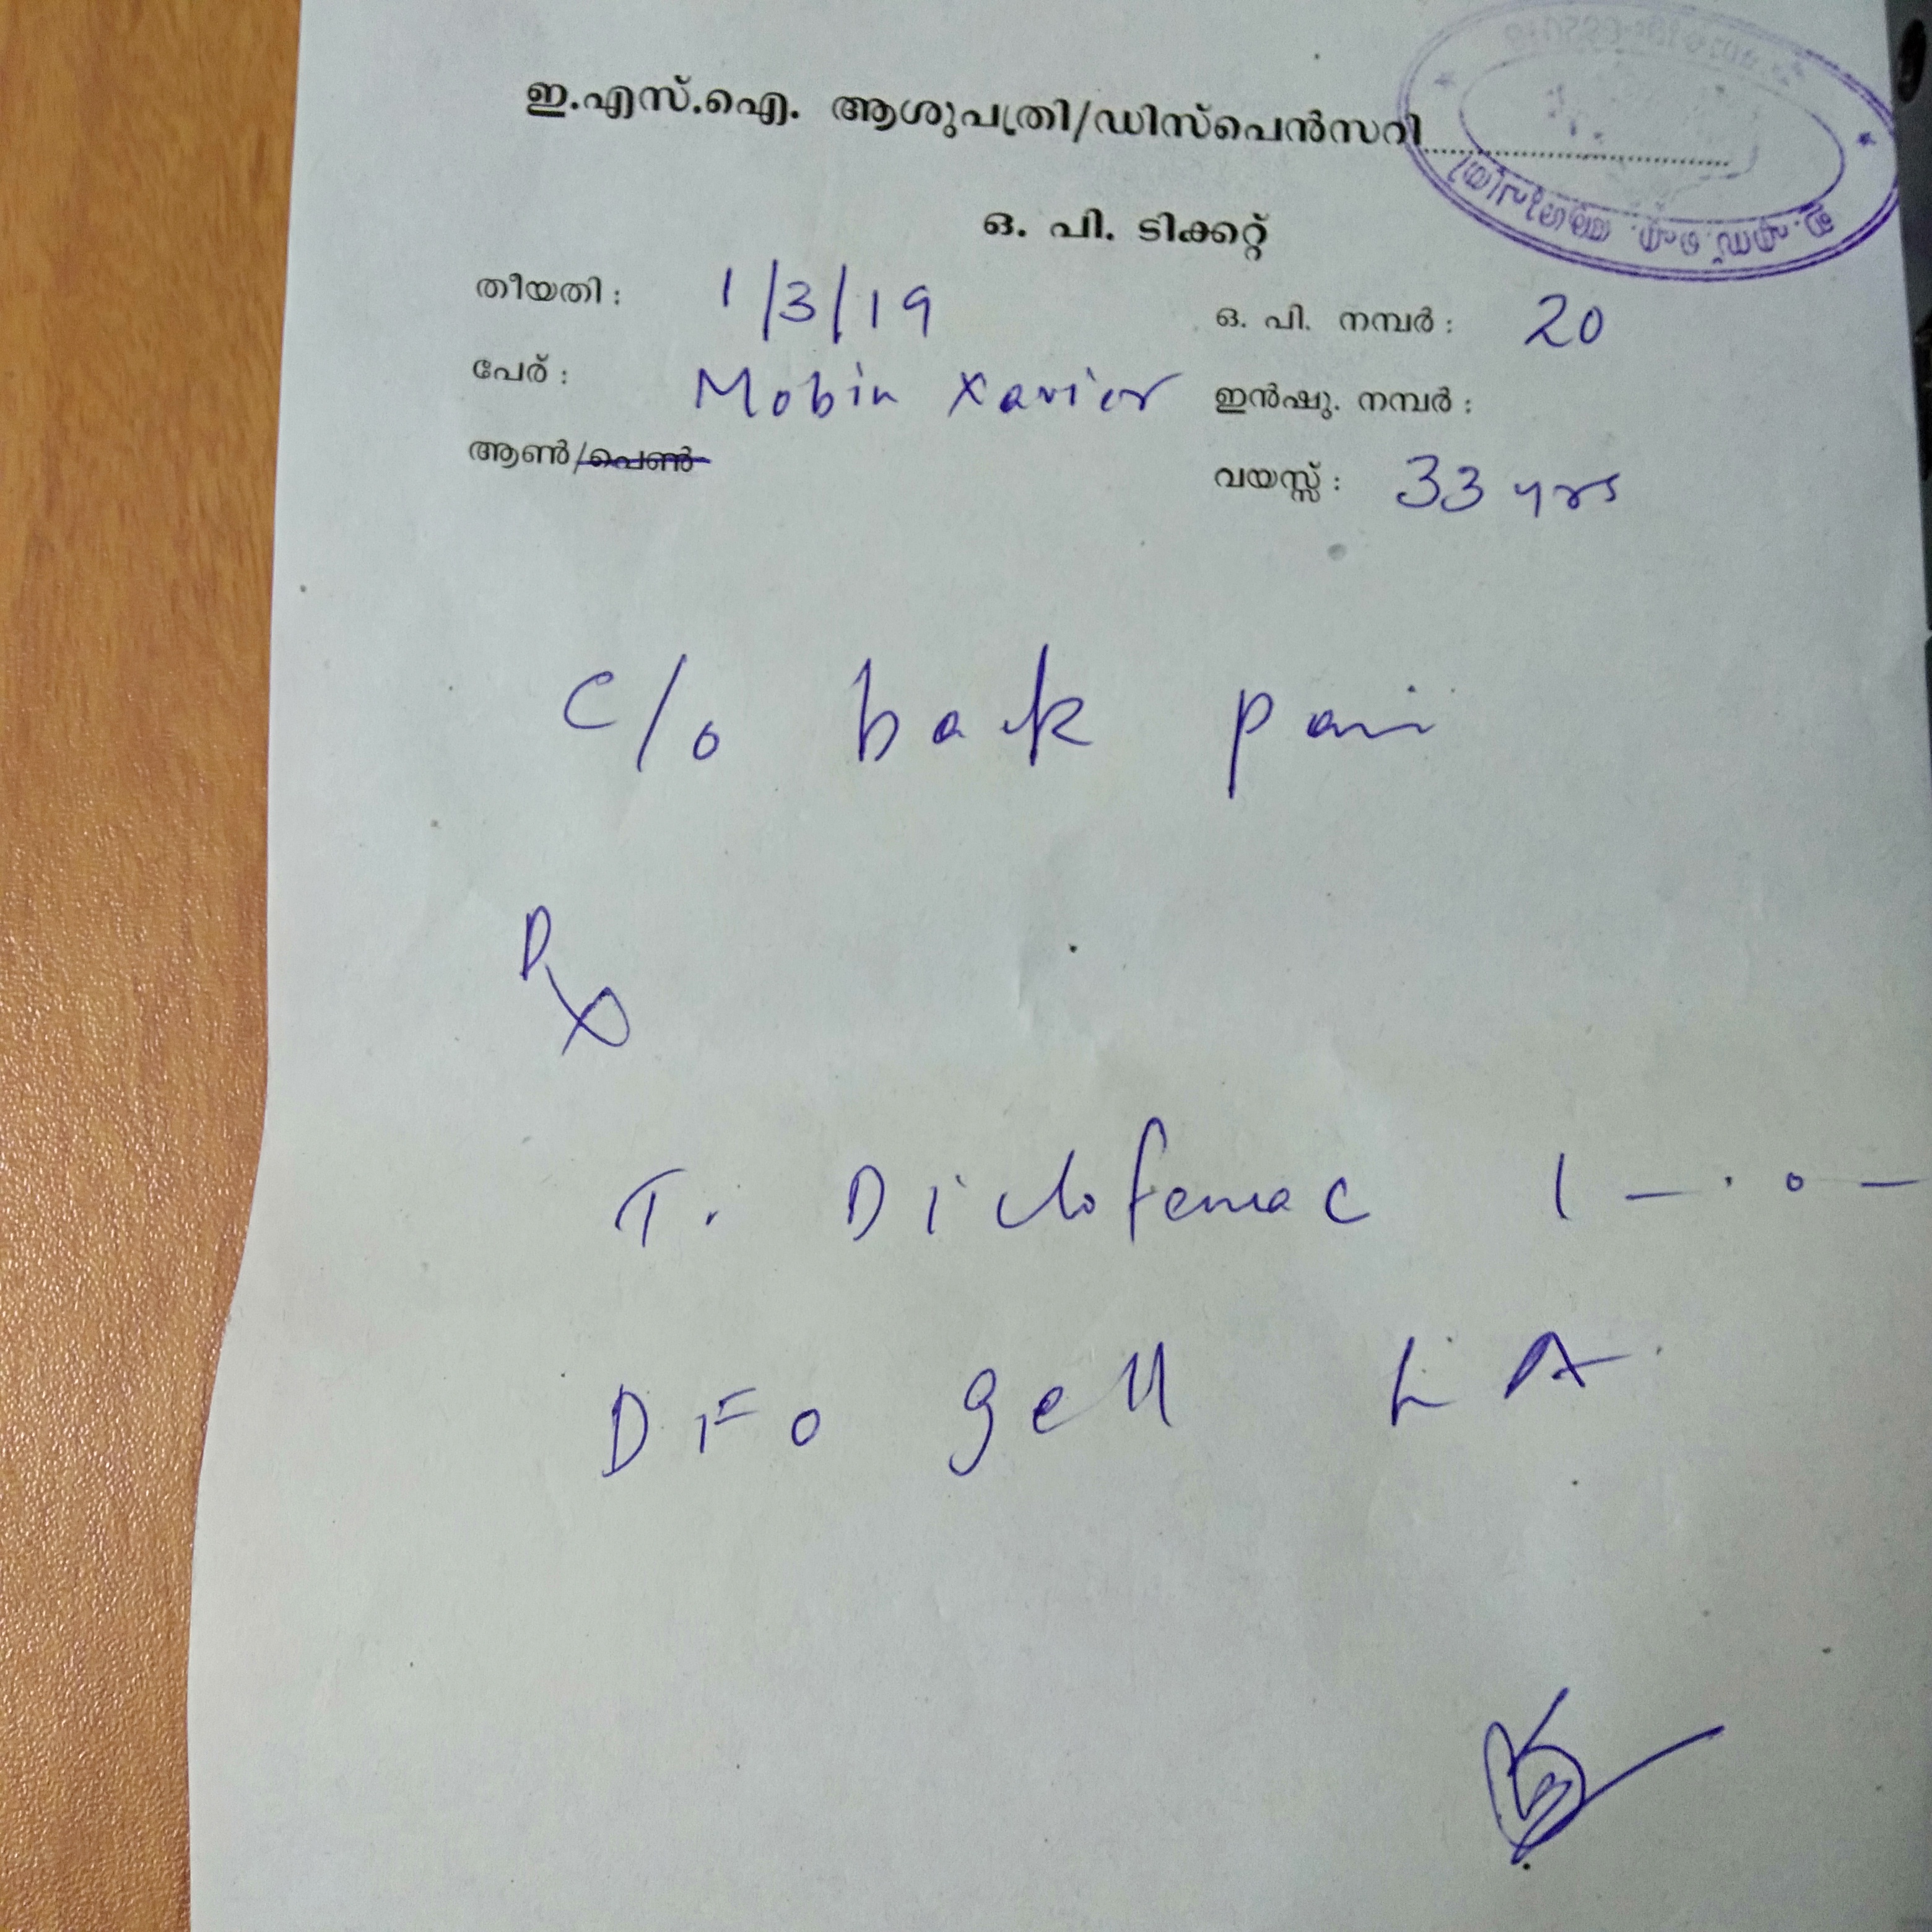 ഇ.എസ്.ഐ. ആശുപത്രി/ഡിസ്പെൻസറി
ഇ.എസ്.ഐ. ആശുപത്രി
ഒ. പി. ടിക്കറ്റ്
തീയതി : 1/3/19 ഒ. പി. നമ്പർ : 20
പേര് : Mobin Xavier ഇൻഷു. നമ്പർ :
ആൺ/പെൺ വയസ്സ് : 33 yrs
C/o back pain
Rx
T. Diclofenac 1 — 0 —
DFO gell LA